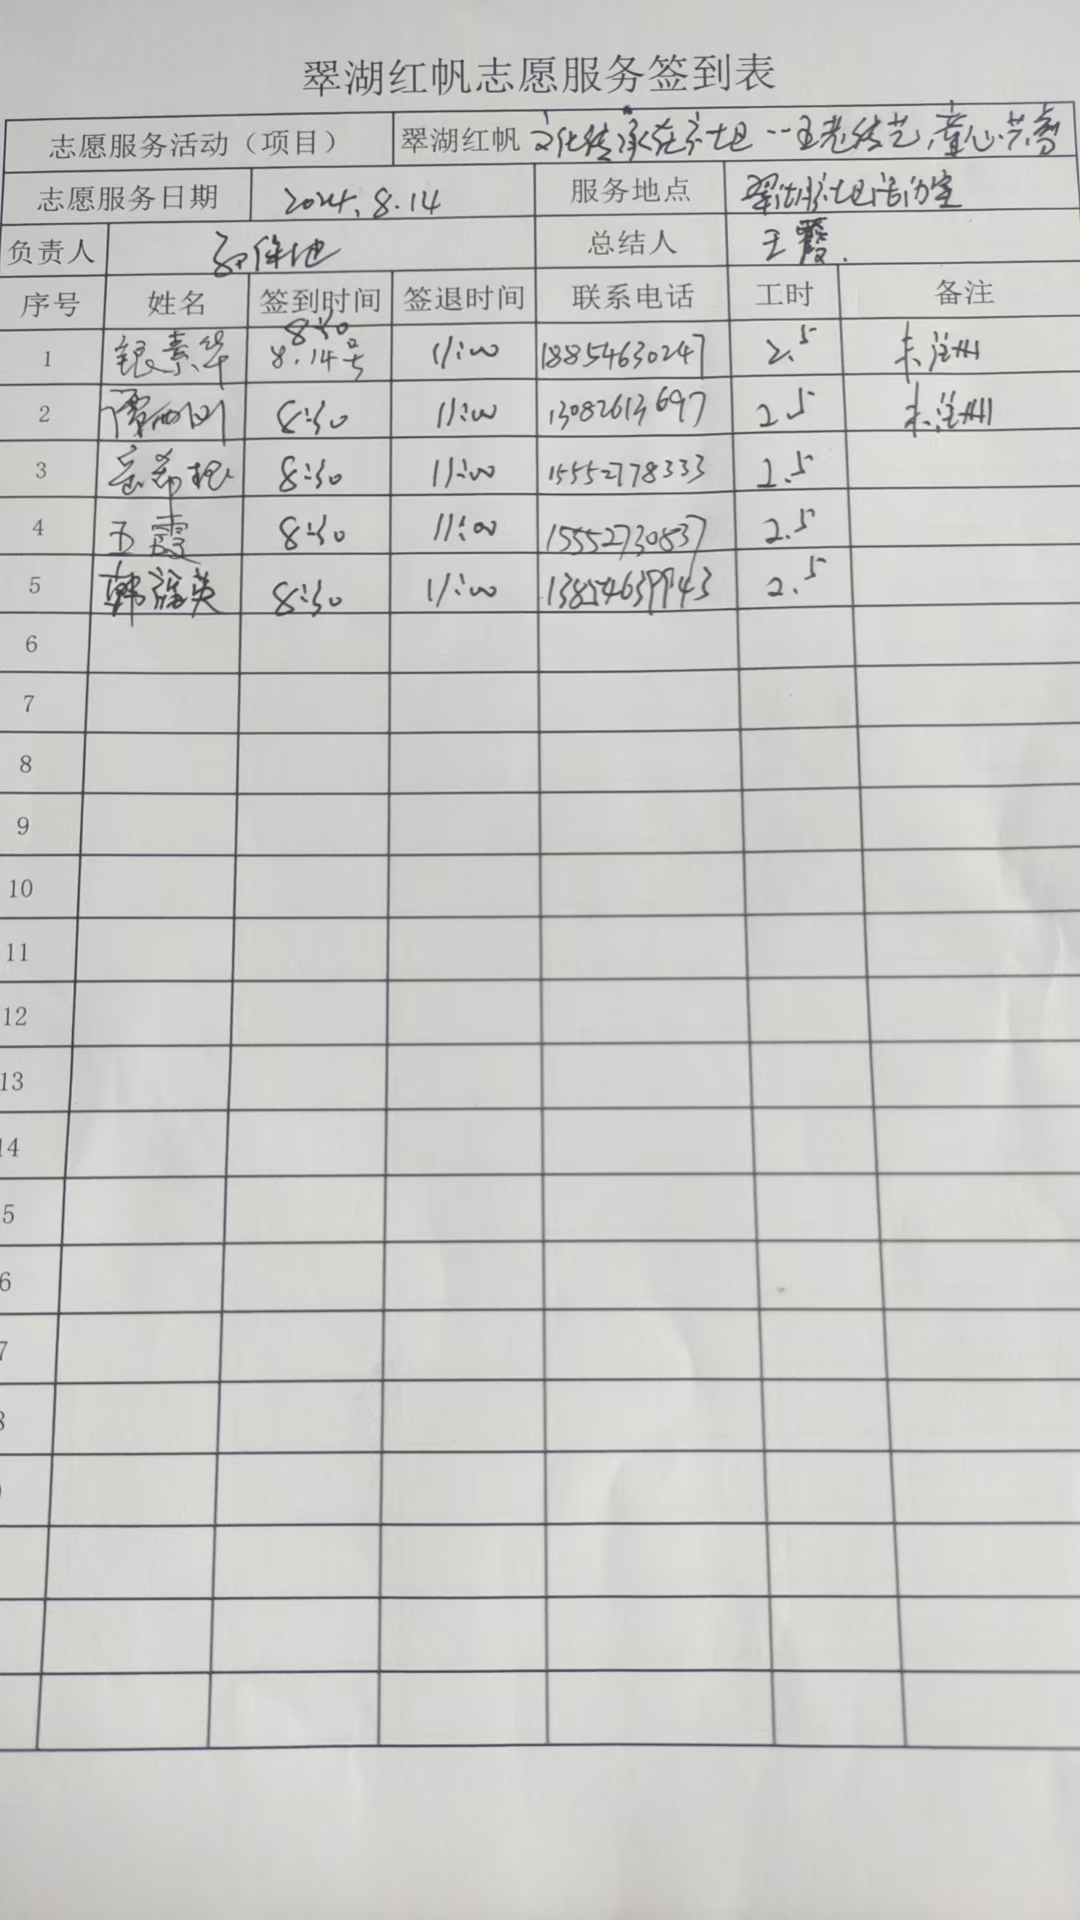 翠湖红帆志愿服务签到表
志愿服务活动（项目） 翠湖红帆 文化传承在社区--王老传艺,童心共享
志愿服务日期 2024.8.14 服务地点 翠湖社区活动室
负责人 总结人 王霞.
序号 姓名 签到时间 签退时间 联系电话 工时 备注
1 银素华 8:30 8.14号 11:00 18854630247 2.5 未注册
2 8:30 11:00 13082613697 2.5 未注册
3 8:30 11:00 15552778333 2.5
4 王霞 8:30 11:00 15552730837 2.5
5 8:30 11:00 13854639943 2.5
6
7
8
9
10
11
12
13
14
5
6
7
8